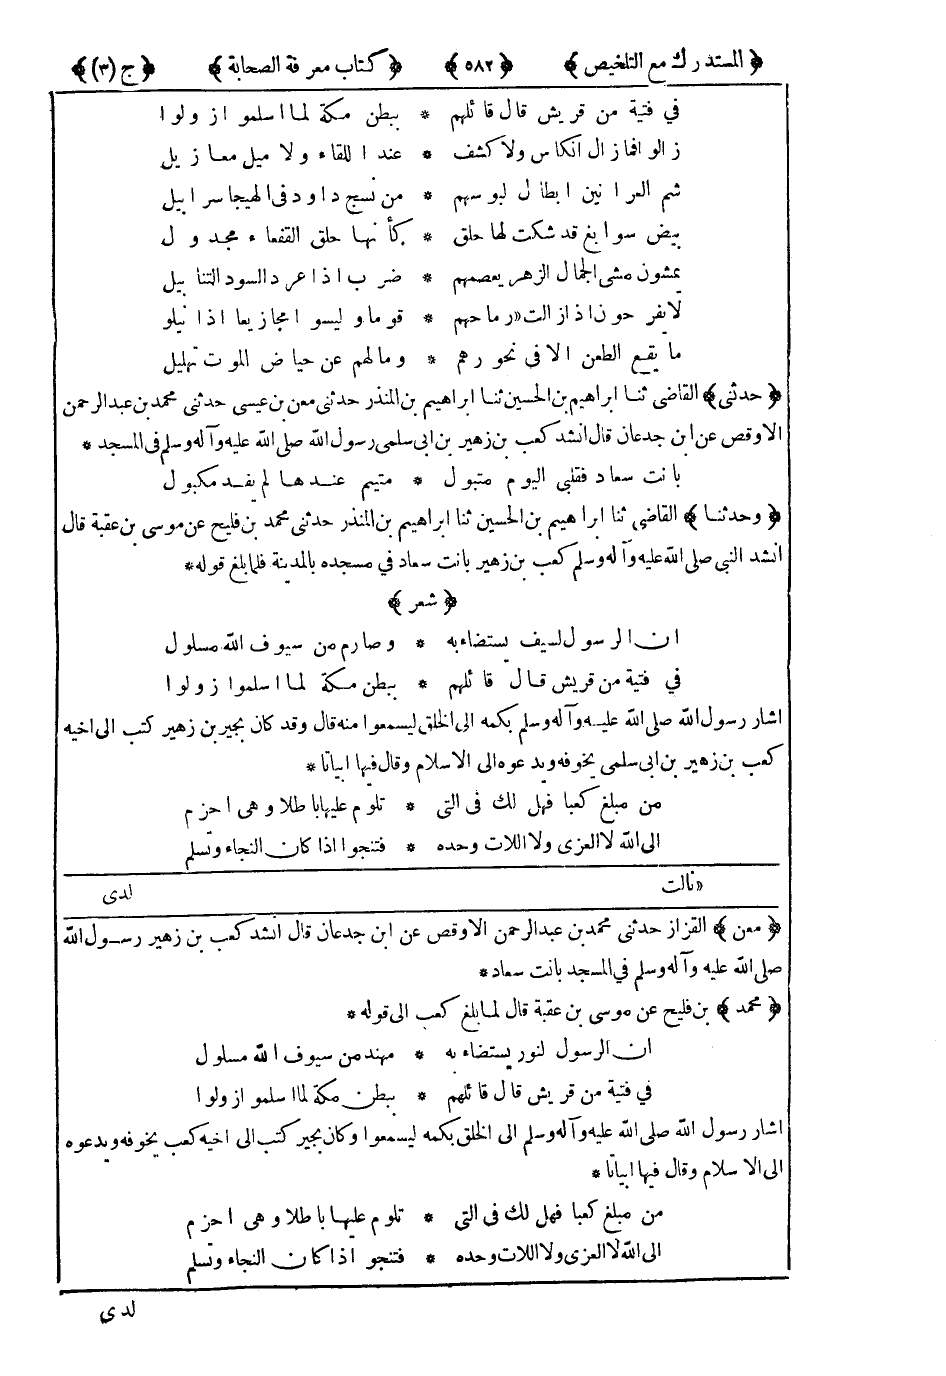 ﴿ المستدرك مع التلخيص ﴾ ﴿ ٥٨٢ ﴾ ﴿ كتاب معرفة الصحابة ﴾ ﴿ ج (٣) ﴾
في فتية من قريش قال قائلهم * ببطن مكة لما اسلموا زولوا
زالوا فما زال انكاس ولا كشف * عند اللقاء ولا ميل معازيل
شم العرانين ابطال لبوسهم * من نسج داود فى الهيجا سرابيل
بيض سوابغ قد شكت لها حلق * كأنها حلق القفعاء مجدول
يمشون مشى الجمال الزهر يعصمهم * ضرب اذا عرد السود التنابيل
لا يفرحون اذا زالت« رماحهم * قوما وليسوا مجازيعا اذا نيلوا
ما يقع الطعن الا فى نحورهم * وما لهم عن حياض الموت تهليل
﴿ حدثنى ﴾ القاضى ثنا ابراهيم بن الحسين ثنا ابراهيم بن المنذر حدثنى معن بن عيسى حدثنى محمد بن عبد الرحمن
الاوقص عن ابن جدعان قال انشد كعب بن زهير بن ابى سلمى رسول الله صلى الله عليه وآله وسلم فى المسجد *
بانت سعاد فقلبى اليوم متبول * متيم عندها لم يفد مكبول
﴿ وحدثنا ﴾ القاضى ثنا ابراهيم بن الحسين ثنا ابراهيم بن المنذر حدثنى محمد بن فليح عن موسى بن عقبة قال
انشد النبى صلى الله عليه وآله وسلم كعب بن زهير بانت سعاد في مسجده بالمدينة فلما بلغ قوله *
﴿ شعر ﴾
ان الرسول لسيف يستضاء به * وصارم من سيوف الله مسلول
في فتية من قريش قال قائلهم * ببطن مكة لما اسلموا زولوا
اشار رسول الله صلى الله عليه وآله وسلم بكمه الى الخلق ليسمعوا منه قال وقد كان بجير بن زهير كتب الى اخيه
كعب بن زهير بن ابى سلمى يخوفه ويدعوه الى الاسلام وقال فيها ابياتا *
من مبلغ كعبا فهل لك فى التى * تلوم عليها باطلا وهى احزم
الى الله لا العزى ولا اللات وحده * فتنجوا اذا كان النجاء وتسلم
«نالت لدى
﴿ معن ﴾ القزاز حدثنى محمد بن عبد الرحمن الاوقص عن ابن جدعان قال انشد كعب بن زهير رسول الله
صلى الله عليه وآله وسلم في المسجد بانت سعاد *
﴿ محمد ﴾ بن فليح عن موسى بن عقبة قال لما بلغ كعب الى قوله *
ان الرسول لنور يستضاء به * مهند من سيوف الله مسلول
في فتية من قريش قال قائلهم * ببطن مكة لما اسلموا زولوا
اشار رسول الله صلى الله عليه وآله وسلم الى الخلق بكمه ليسمعوا وكان بجير كتب الى اخيه كعب يخوفه ويدعوه
الى الاسلام وقال فيها ابياتا *
من مبلغ كعبا فهل لك فى التى * تلوم عليها باطلا وهى احزم
الى الله لا العزى ولا اللات وحده * فتنجوا اذا كان النجاء وتسلم
لدى